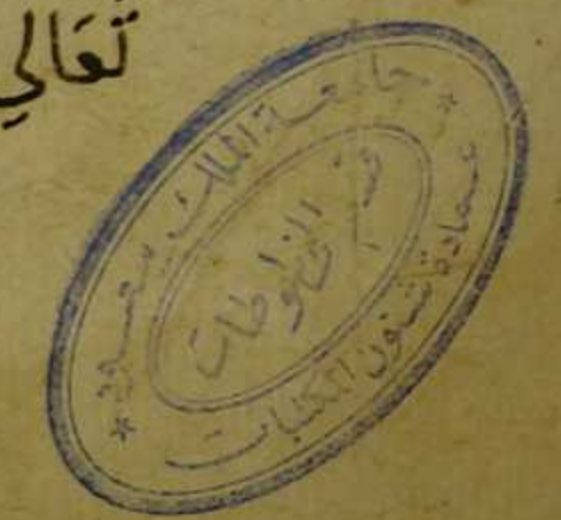 تَعَالي
جامعة الملك سعود
قسم المخطوطات
عمادة شئون المكتبات